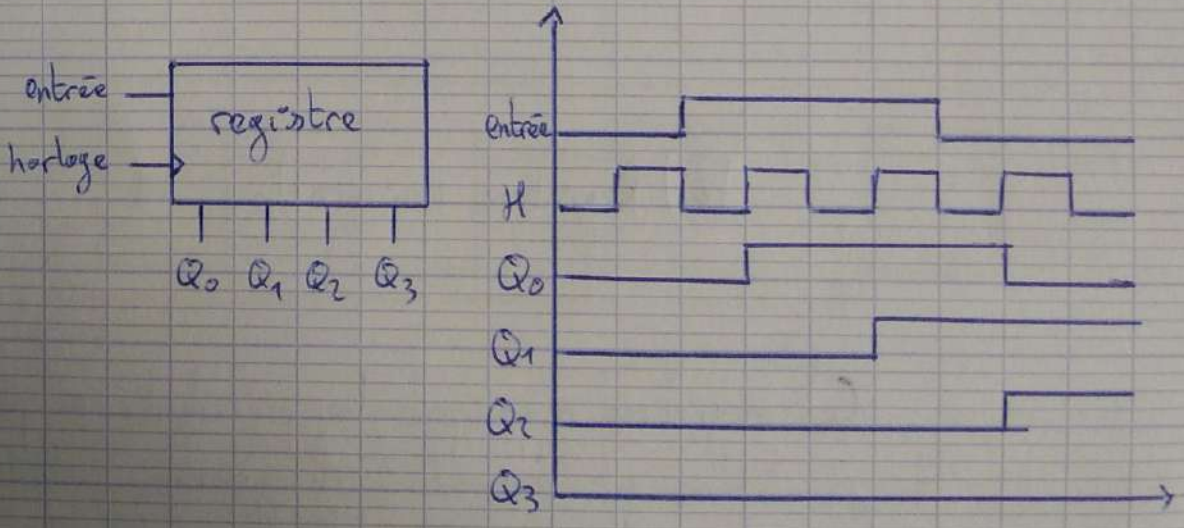 entrée
horloge
registre
Q0 Q1 Q2 Q3
entrée
H
Q0
Q1
Q2
Q3